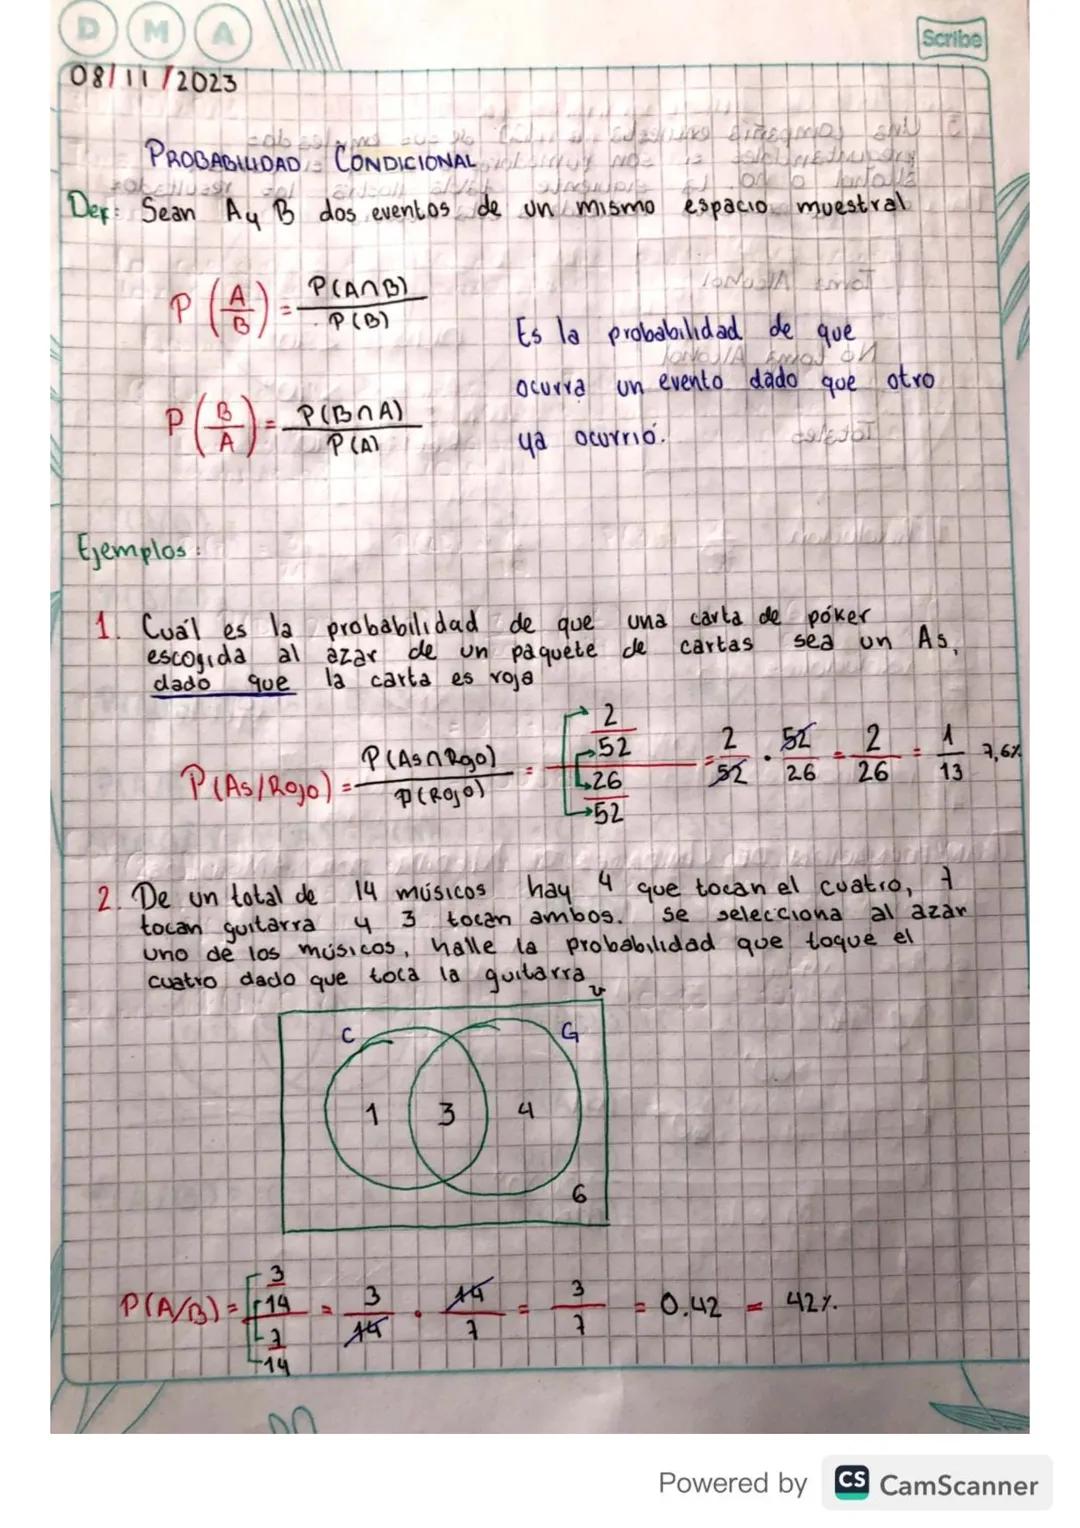 D M A
Scribe
08/11/2023
PROBABILIDAD CONDICIONAL
Def: Sean A y B dos eventos de un mismo espacio muestral
P(A/B) = P(A∩B)/P(B)
Es la probabilidad de que
ocurra un evento dado que otro
ya ocurrió.
P(B/A) = P(B∩A)/P(A)
Ejemplos:
1. Cuál es la probabilidad de que una carta de póker
escogida al azar de un paquete de cartas sea un As,
dado que la carta es roja
P(As/Rojo) = P(As∩Rojo)/P(Rojo) = (2/52)/(26/52) = 2/52 · 52/26 = 2/26 = 1/13 7,6%
2. De un total de 14 músicos hay 4 que tocan el cuatro, 7
tocan guitarra y 3 tocan ambos. Se selecciona al azar
uno de los músicos, halle la probabilidad que toque el
cuatro dado que toca la guitarra
U
C G
1 3 4
6
P(A/B) = (3/14)/(7/14) = 3/14 · 14/7 = 3/7 = 0.42 = 42%.
Powered by CS CamScanner